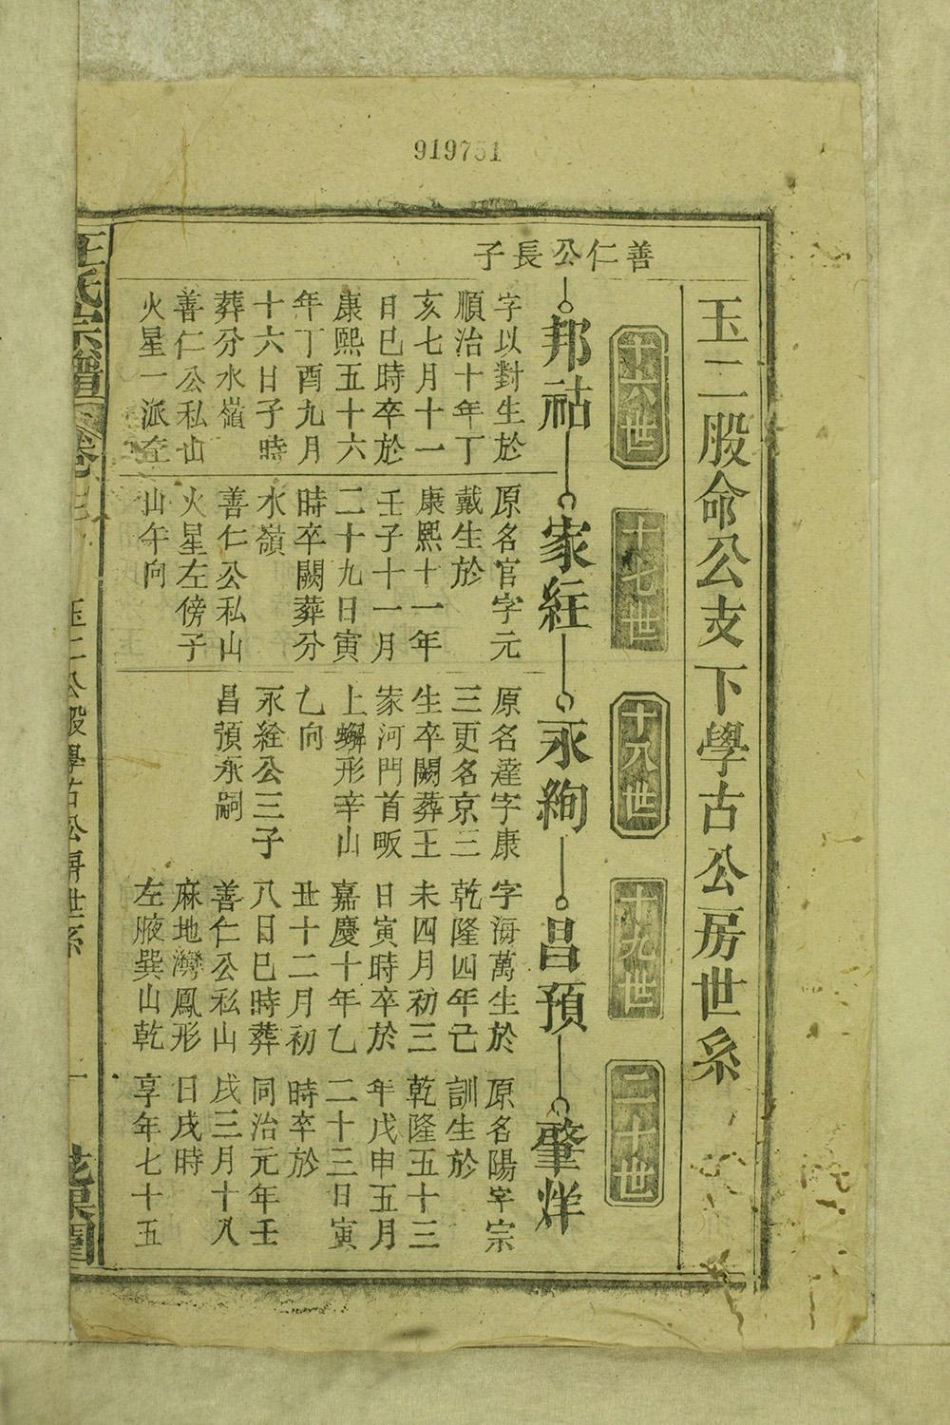 919751
玉二股命公支下學古公房世系
十六世
十七世
十八世
十九世
二十世
善仁公長子
邦祜
字以對生於
順治十年丁
亥七月十一
日巳時卒於
康熙五十六
年丁酉九月
十六日子時
葬分水嶺
善仁公私山
火星一派左
家紝
原名官字元
戴生於
康熙十一年
壬子十一月
二十九日寅
時卒闕葬分
水嶺
善仁公私山
火星左傍子
山午向
永絢
原名達字康
三更名京三
生卒闕葬王
家河門首畈
上螂形辛山
乙向
永銓公三子
昌預承嗣
昌預
字海萬生於
乾隆四年己
未四月初三
日寅時卒於
嘉慶十年乙
丑十二月初
八日巳時葬
善仁公私山
麻地灣鳳形
左腋巽山乾
肇烊
原名陽字宗
訓生於
乾隆五十三
年戊申五月
二十三日寅
時卒於
同治元年壬
戌三月十八
日戌時
享年七十五
王氏宗譜
卷
玉二公股學古公房世系
一